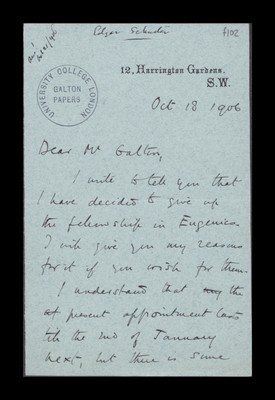 Edgar Schuster
A102
UNIVERSITY COLLEGE LONDON
GALTON
PAPERS
12, Harrington Gardens.
S.W.
Oct 18 1906
Dear Mr Galton,
I write to tell you that
I have decided to give up
the fellowship in Eugenics.
I will give you my reasons
for it if you wish for them.
I understand that the
present appointment lasts
till the end of January
next, but there is some